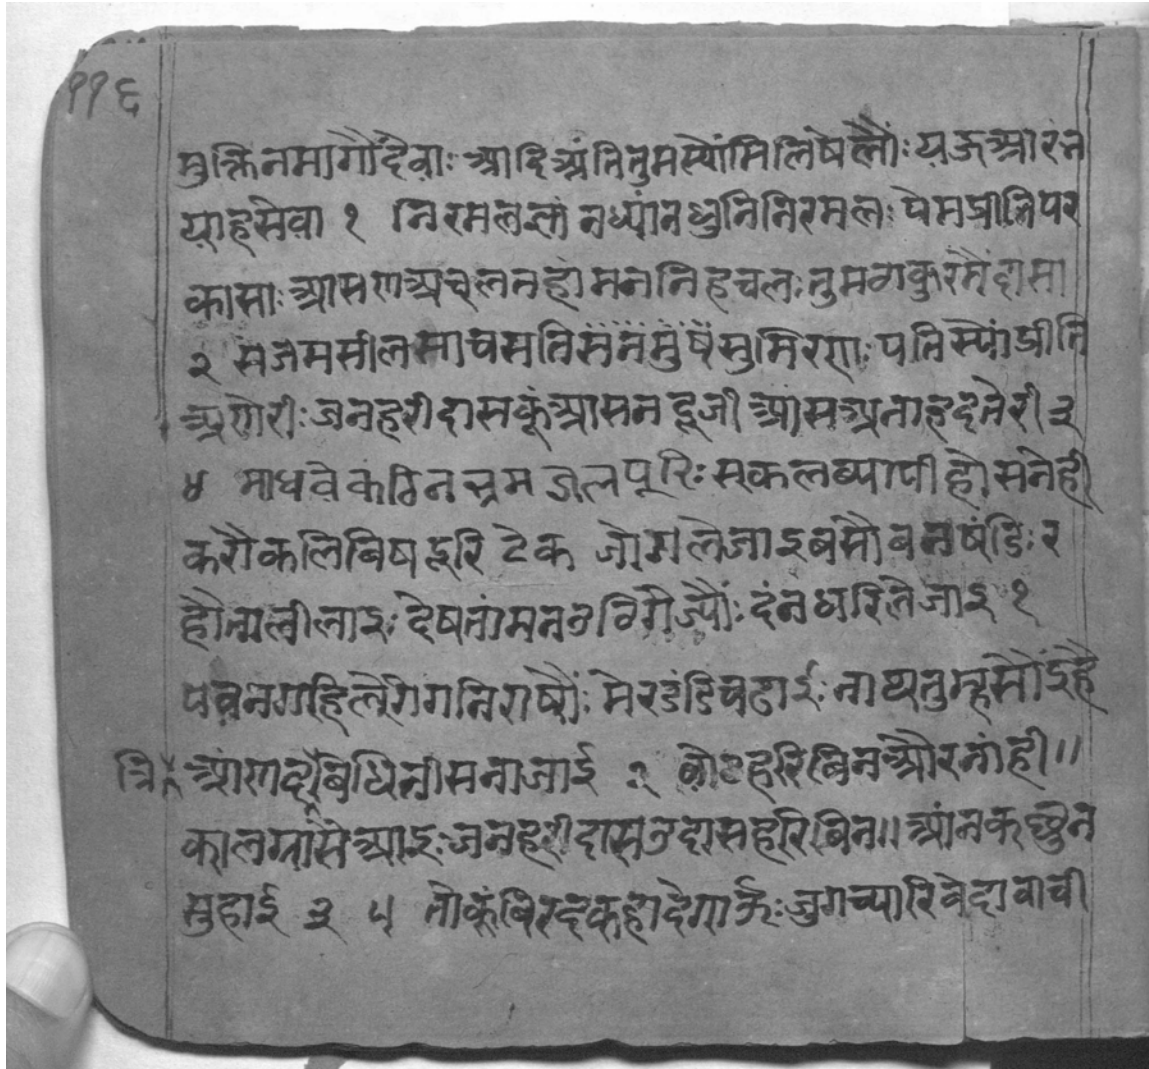 ११६
मुक्तिनमागौंदेवाः आदिअंतितुमस्यौंमिलिषेलौंः यऊआरंन
याहसेवा १ निरमलग्यांनध्यांनधुनिनिरमलः पेमप्रीतिपर
कासाः आसणअचलनहींमननिहचलः तुमठाकुरमैंदासा
२ संजमसीलसाचसतिसुमिरणः पतिस्यौंप्रीति
जनहरीदासकूंआसनदूजी आसअनाहदतेरी ३
४ माधवेकठिनभ्रमजलपूरिः सकलब्यापीहौसनेही
करौकलिबिषदूरि टेक जोगलैजाइबसौंबनषंडिः र
हौंल्यौलाइः देषतांमनठगिगैज्यौंः दंनधरितैजाइ १
पवनगहिलैगगनिराषौंः मेरडंडिचढाईः नाथतुम्हसौंइहै
आंणदबिधिनीसनाजाई २ हरिबिनऔरनांहीं॥
कालग्रासैआइः जनहरीदासउदासहरिबिन॥ आंनकछून
सुहाई ३ ५ तौकूंबिरदकहादेगाऊंः जुगच्यारिबेदाबाची